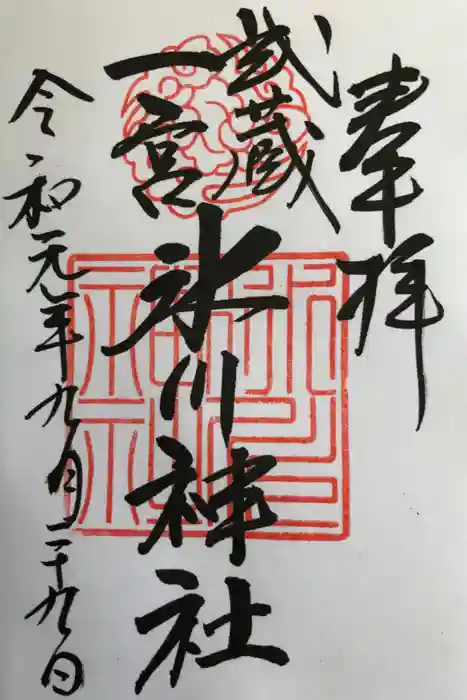 奉拝
武蔵
一宮
氷川神社
令和元年九月二十九日
氷川神社